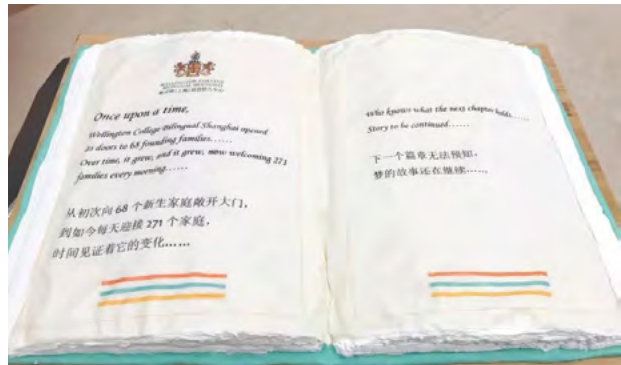 Once upon a time,
Wellington College Bilingual Shanghai opened
its doors to 68 founding families......
Over time, it grew, and it grew, now welcoming 271
families every morning......
从初次向 68 个新生家庭敞开大门，
到如今每天迎接 271 个家庭，
时间见证着它的变化......
Who knows what the next chapter holds......
Story to be continued......
下一个篇章无法预知，
梦的故事还在继续......